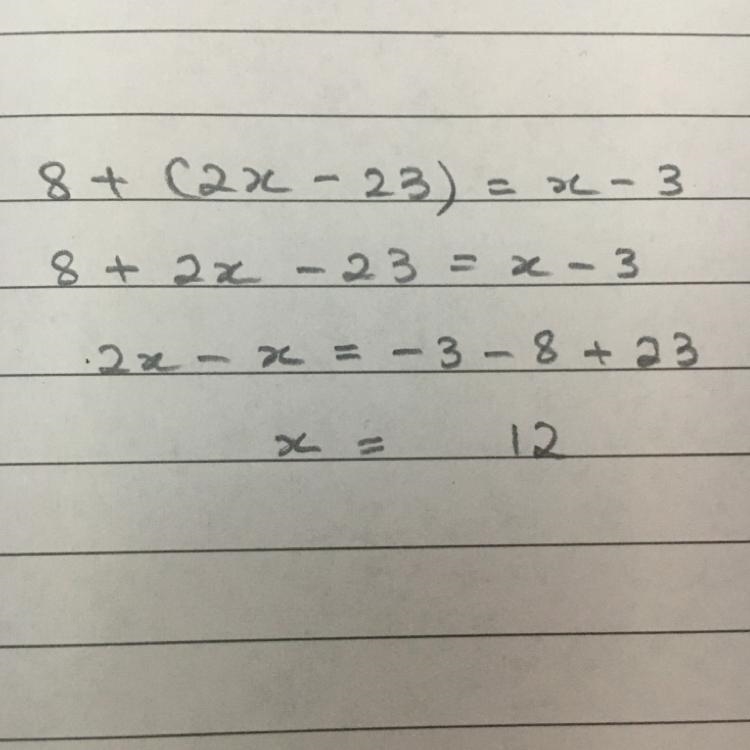 8 + (2x - 23) = x - 3
8 + 2x - 23 = x - 3
2x - x = -3 - 8 + 23
x = 12